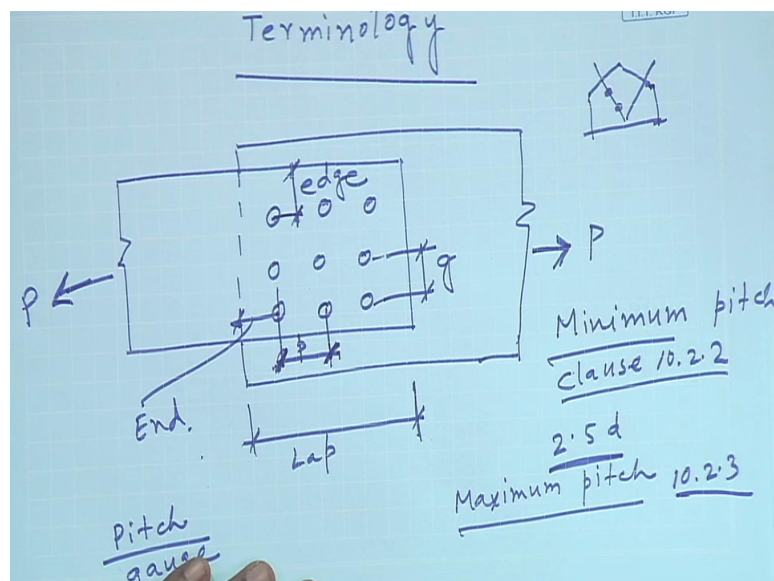 Terminology
edge
P
g
P
p
End.
Lap
Minimum pitch
Clause 10.2.2
2.5 d
Maximum pitch 10.2.3
Pitch
gauge